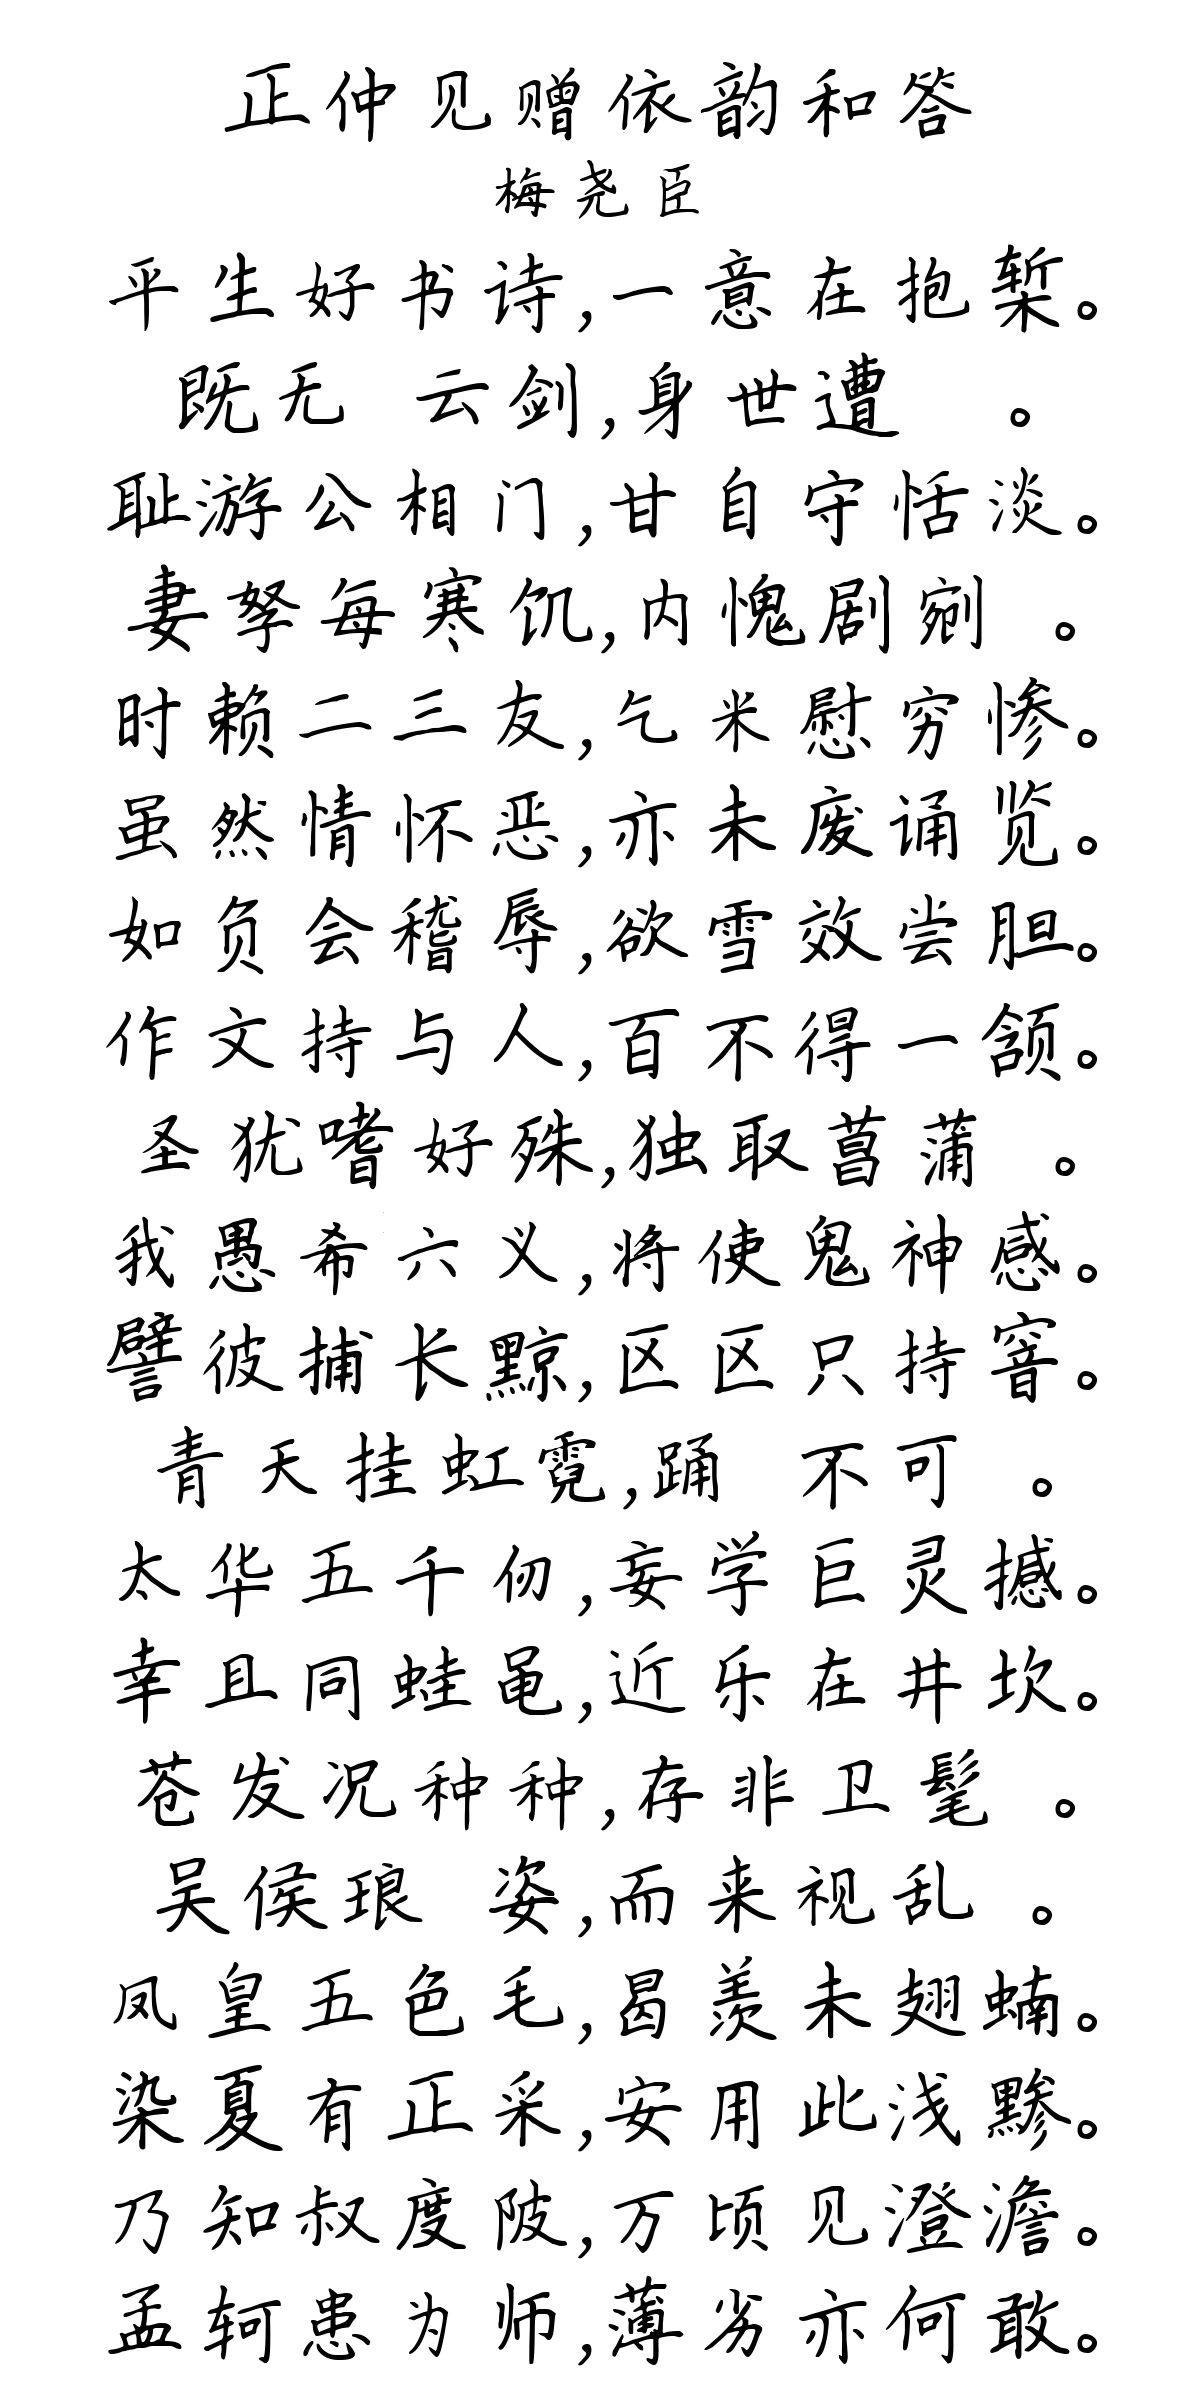 正仲见赠依韵和答
梅尧臣
平生好书诗,一意在抱椠。
既无 云剑,身世遭 。
耻游公相门,甘自守恬淡。
妻孥每寒饥,内愧剧剜 。
时赖二三友,乞米慰穷惨。
虽然情怀恶,亦未废诵览。
如负会稽辱,欲雪效尝胆。
作文持与人,百不得一颔。
圣犹嗜好殊,独取菖蒲 。
我愚希六义,将使鬼神感。
譬彼捕长黥,区区只持窨。
青天挂虹霓,踊 不可 。
太华五千仞,妄学巨灵撼。
幸且同蛙黾,近乐在井坎。
苍发况种种,存非卫髦 。
吴侯琅 姿,而来视乱 。
凤皇五色毛,曷羡未翅蝻。
染夏有正采,安用此浅黪。
乃知叔度陂,万顷见澄澹。
孟轲患为师,薄劣亦何敢。